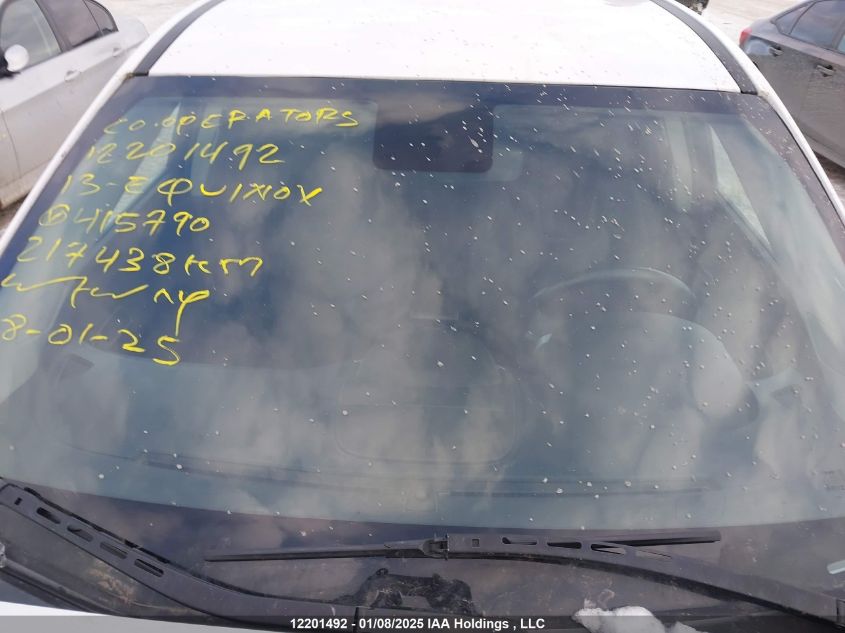 CO.OPERATORS
12201492
13-EQUINOX
415790
217438KM
8-01-25
12201492 - 01/08/2025 IAA Holdings , LLC